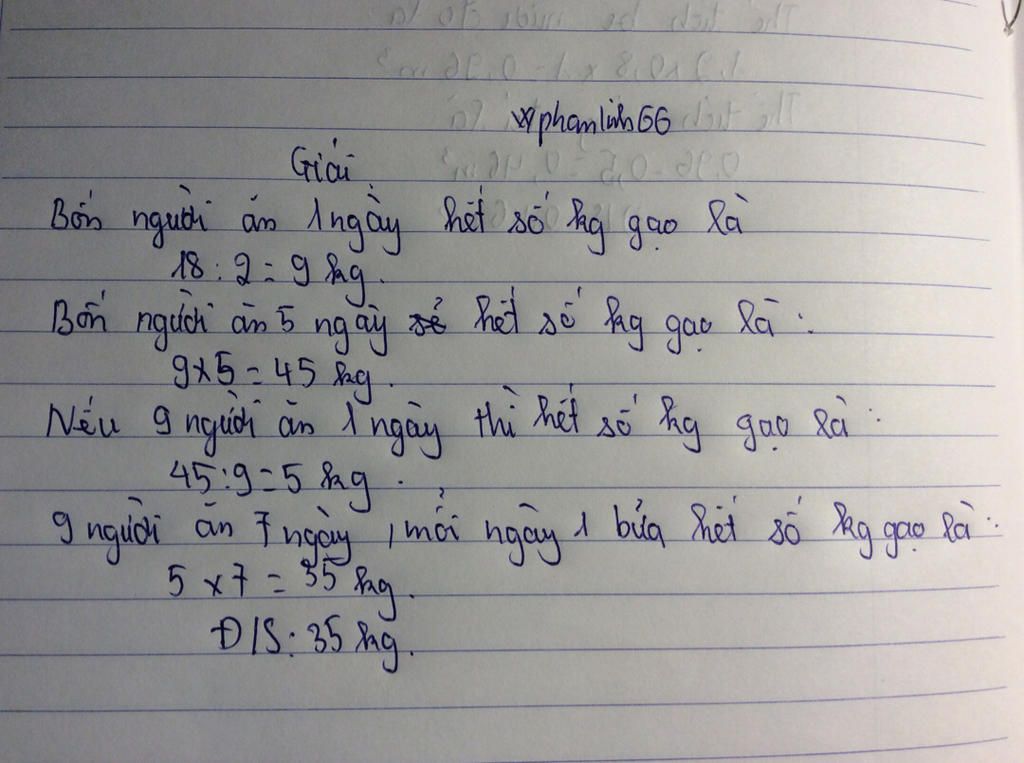 phamlinh66
Giải
Bốn người ăn 1 ngày hết số kg gạo là
18 : 2 = 9 kg.
Bốn người ăn 5 ngày sẽ hết số kg gạo là :
9 x 5 = 45 kg.
Nếu 9 người ăn 1 ngày thì hết số kg gạo là :
45 : 9 = 5 kg.
9 người ăn 7 ngày, mỗi ngày 1 bữa hết số kg gạo là :
5 x 7 = 35 kg.
Đ/S : 35 kg.